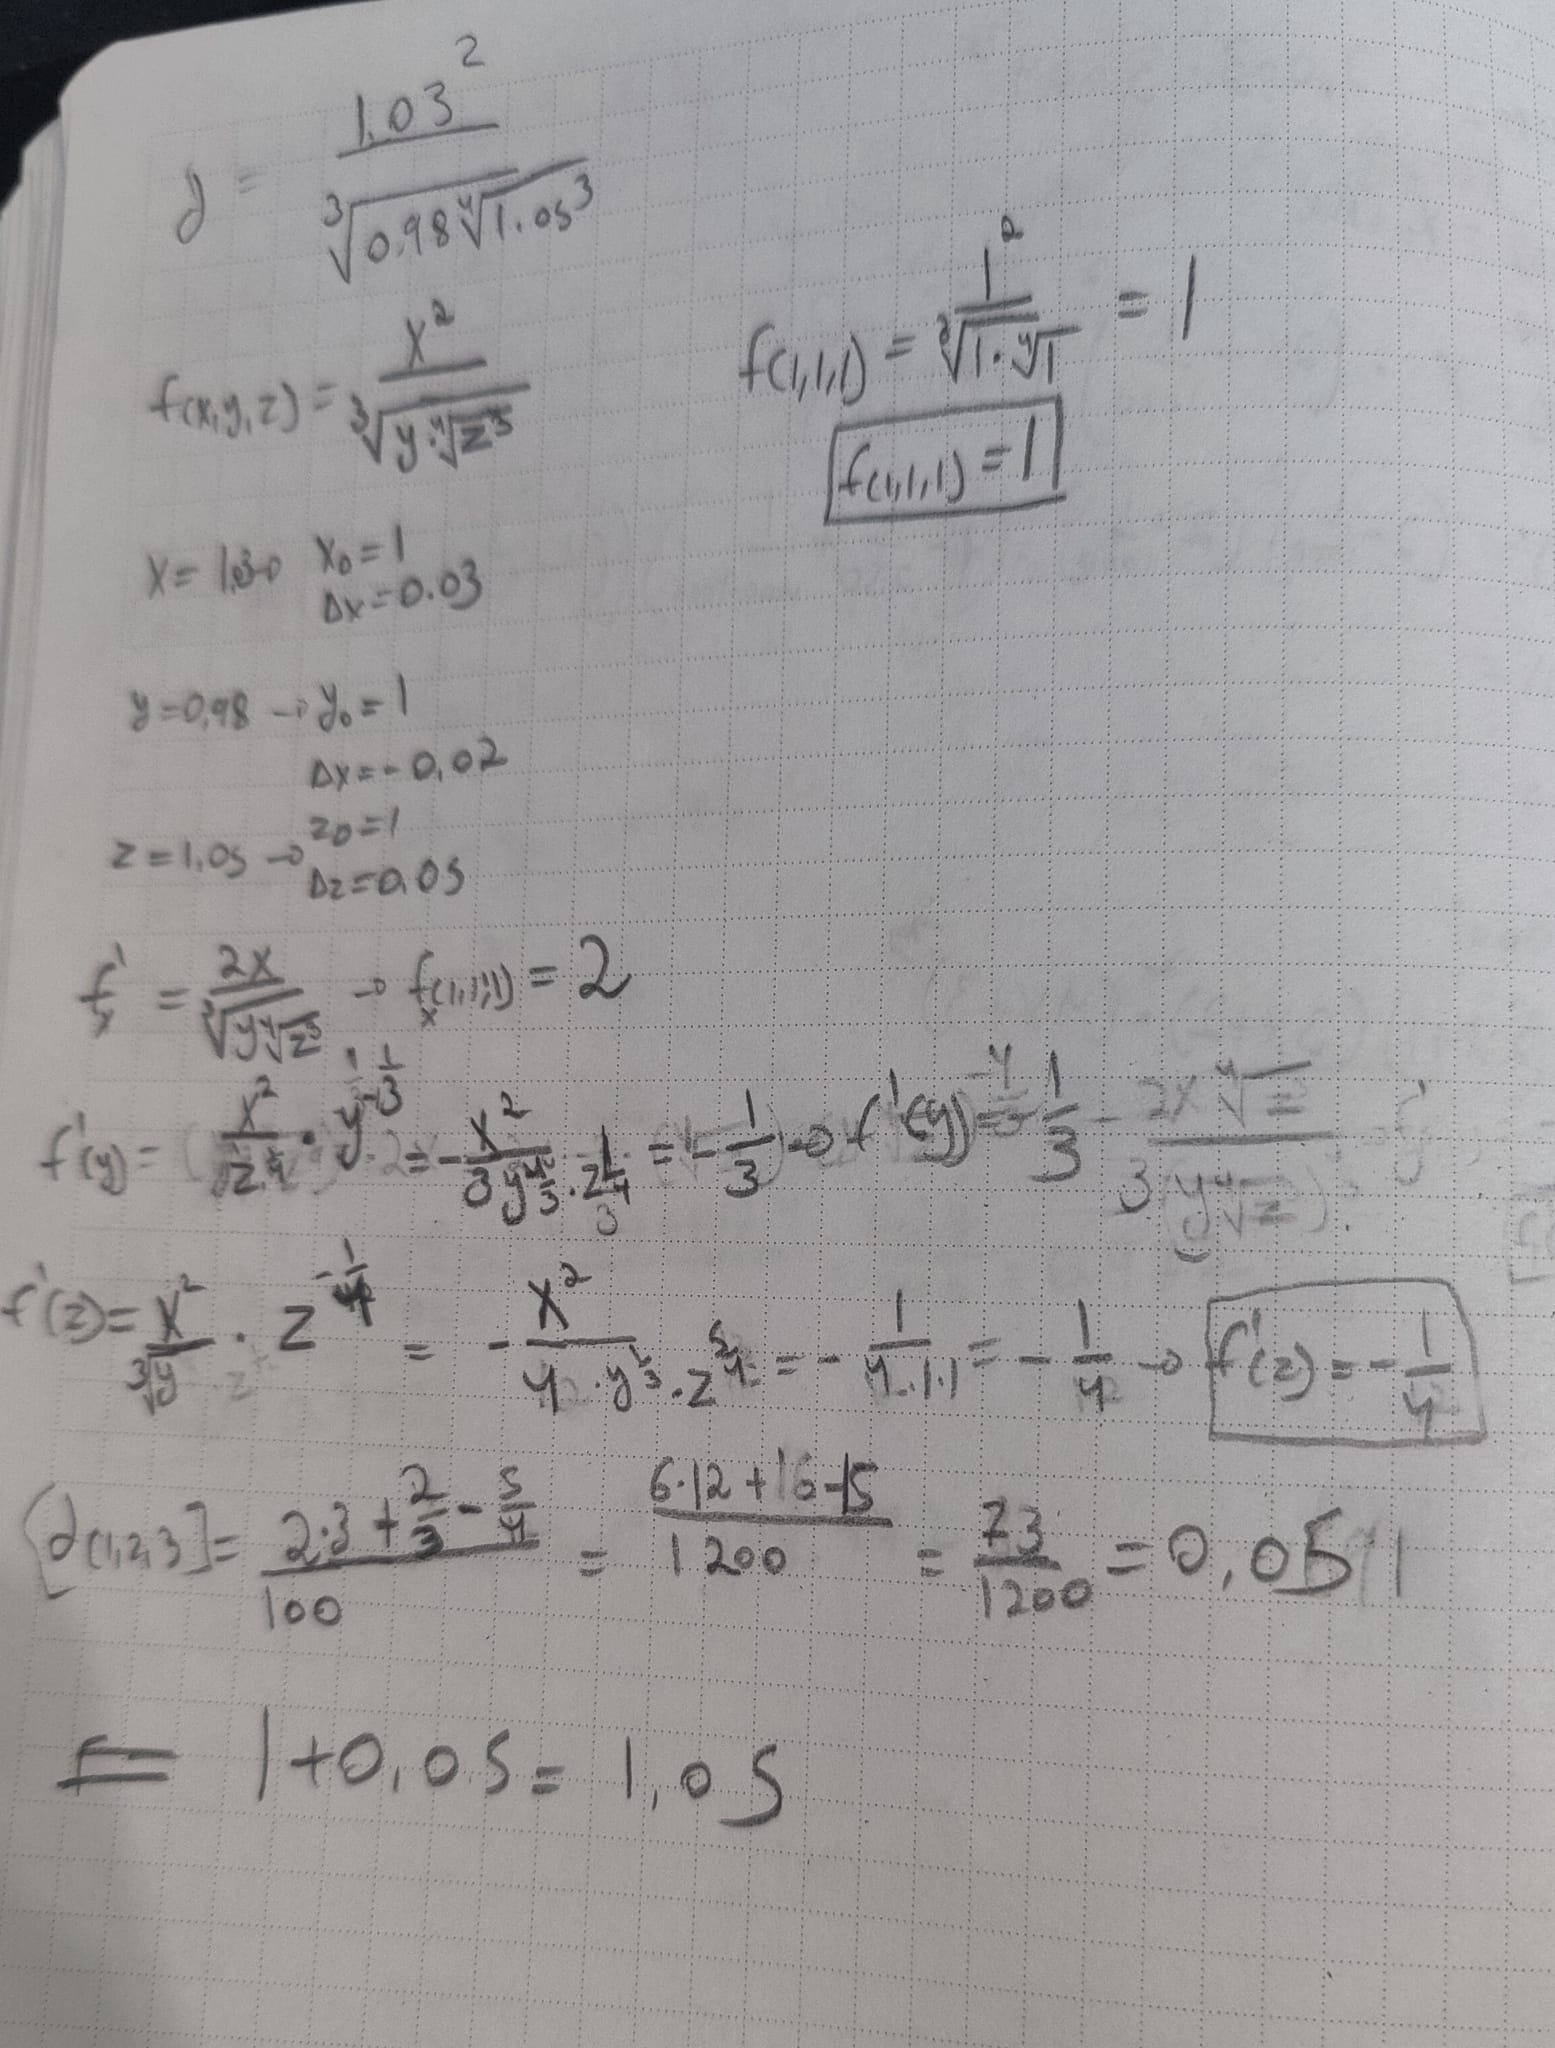 d) = 1.03² / ∛(0.98 ∜(1.05³))
f(x,y,z) = x² / ∛(y·∜(z³))
f(1,1,1) = 1² / ∛(1·∜1) = 1
f(1,1,1) = 1
x = 1.30 x₀ = 1
Δx = 0.03
y = 0,98 → y₀ = 1
Δx = - 0,02
z₀ = 1
z = 1,05 → Δz = 0,05
f'x = 2x / ∛(y∜(z³)) → fx(1,1,1) = 2
f'(y) = x² / z^(1/4) · y^(-1/3) = - x² / (3y^(4/3) · z^(1/4)) = - 1/3 → f'(y) = - 1/3
f'(z) = x² / ∛y · z^(-1/4) = - x² / (4·y^(1/3)·z^(5/4)) = - 1 / (4·1·1) = - 1/4 → f'(z) = - 1/4
[d(1,2,3] = (2·3 + 2/3 - 5/4) / 100 = (6·12+16-15) / 1200 = 73 / 1200 = 0,05
= 1+0,05 = 1,05